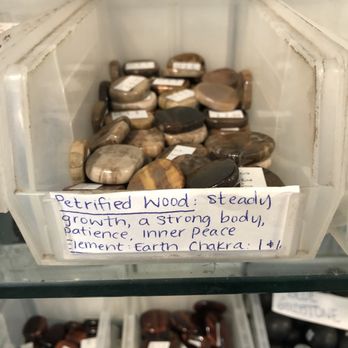 Petrified Wood: Steady
growth, a strong body,
patience, inner peace
lement: Earth Chakra: